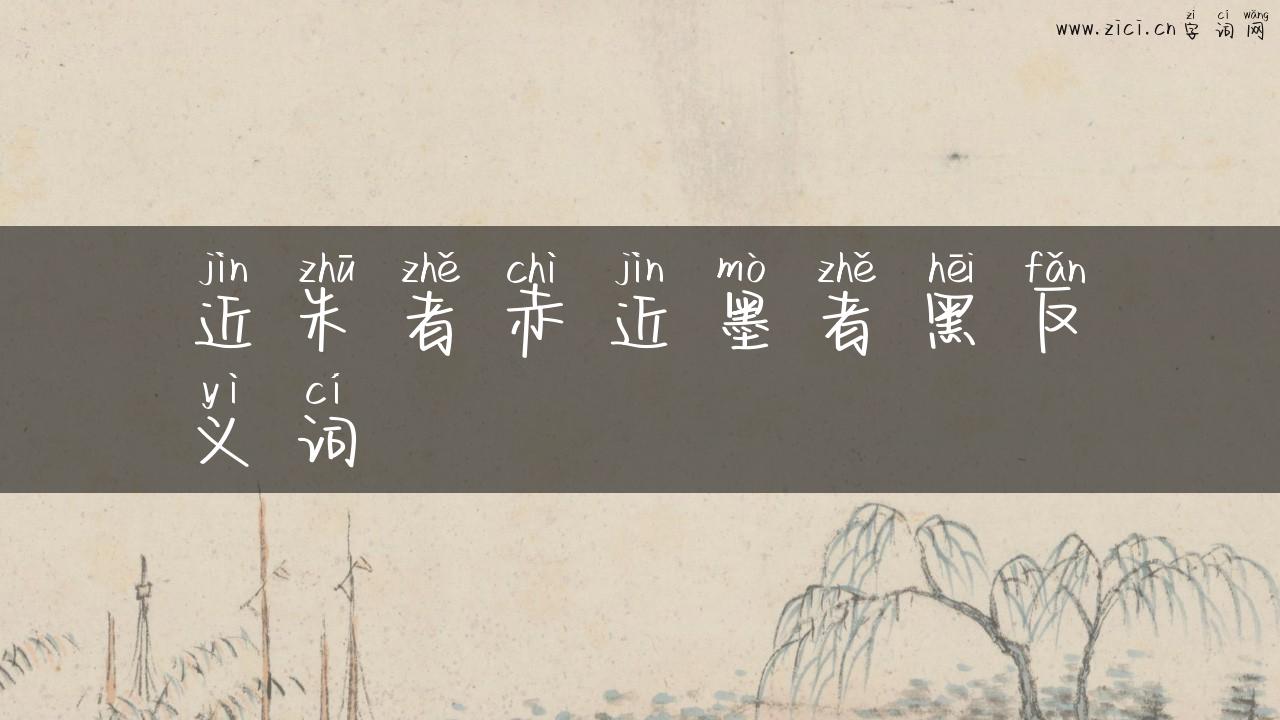 zì cí wǎng
www.zici.cn 字词网
jìn zhū zhě chì jìn mò zhě hēi fǎn
近朱者赤近墨者黑反
yì cí
义词